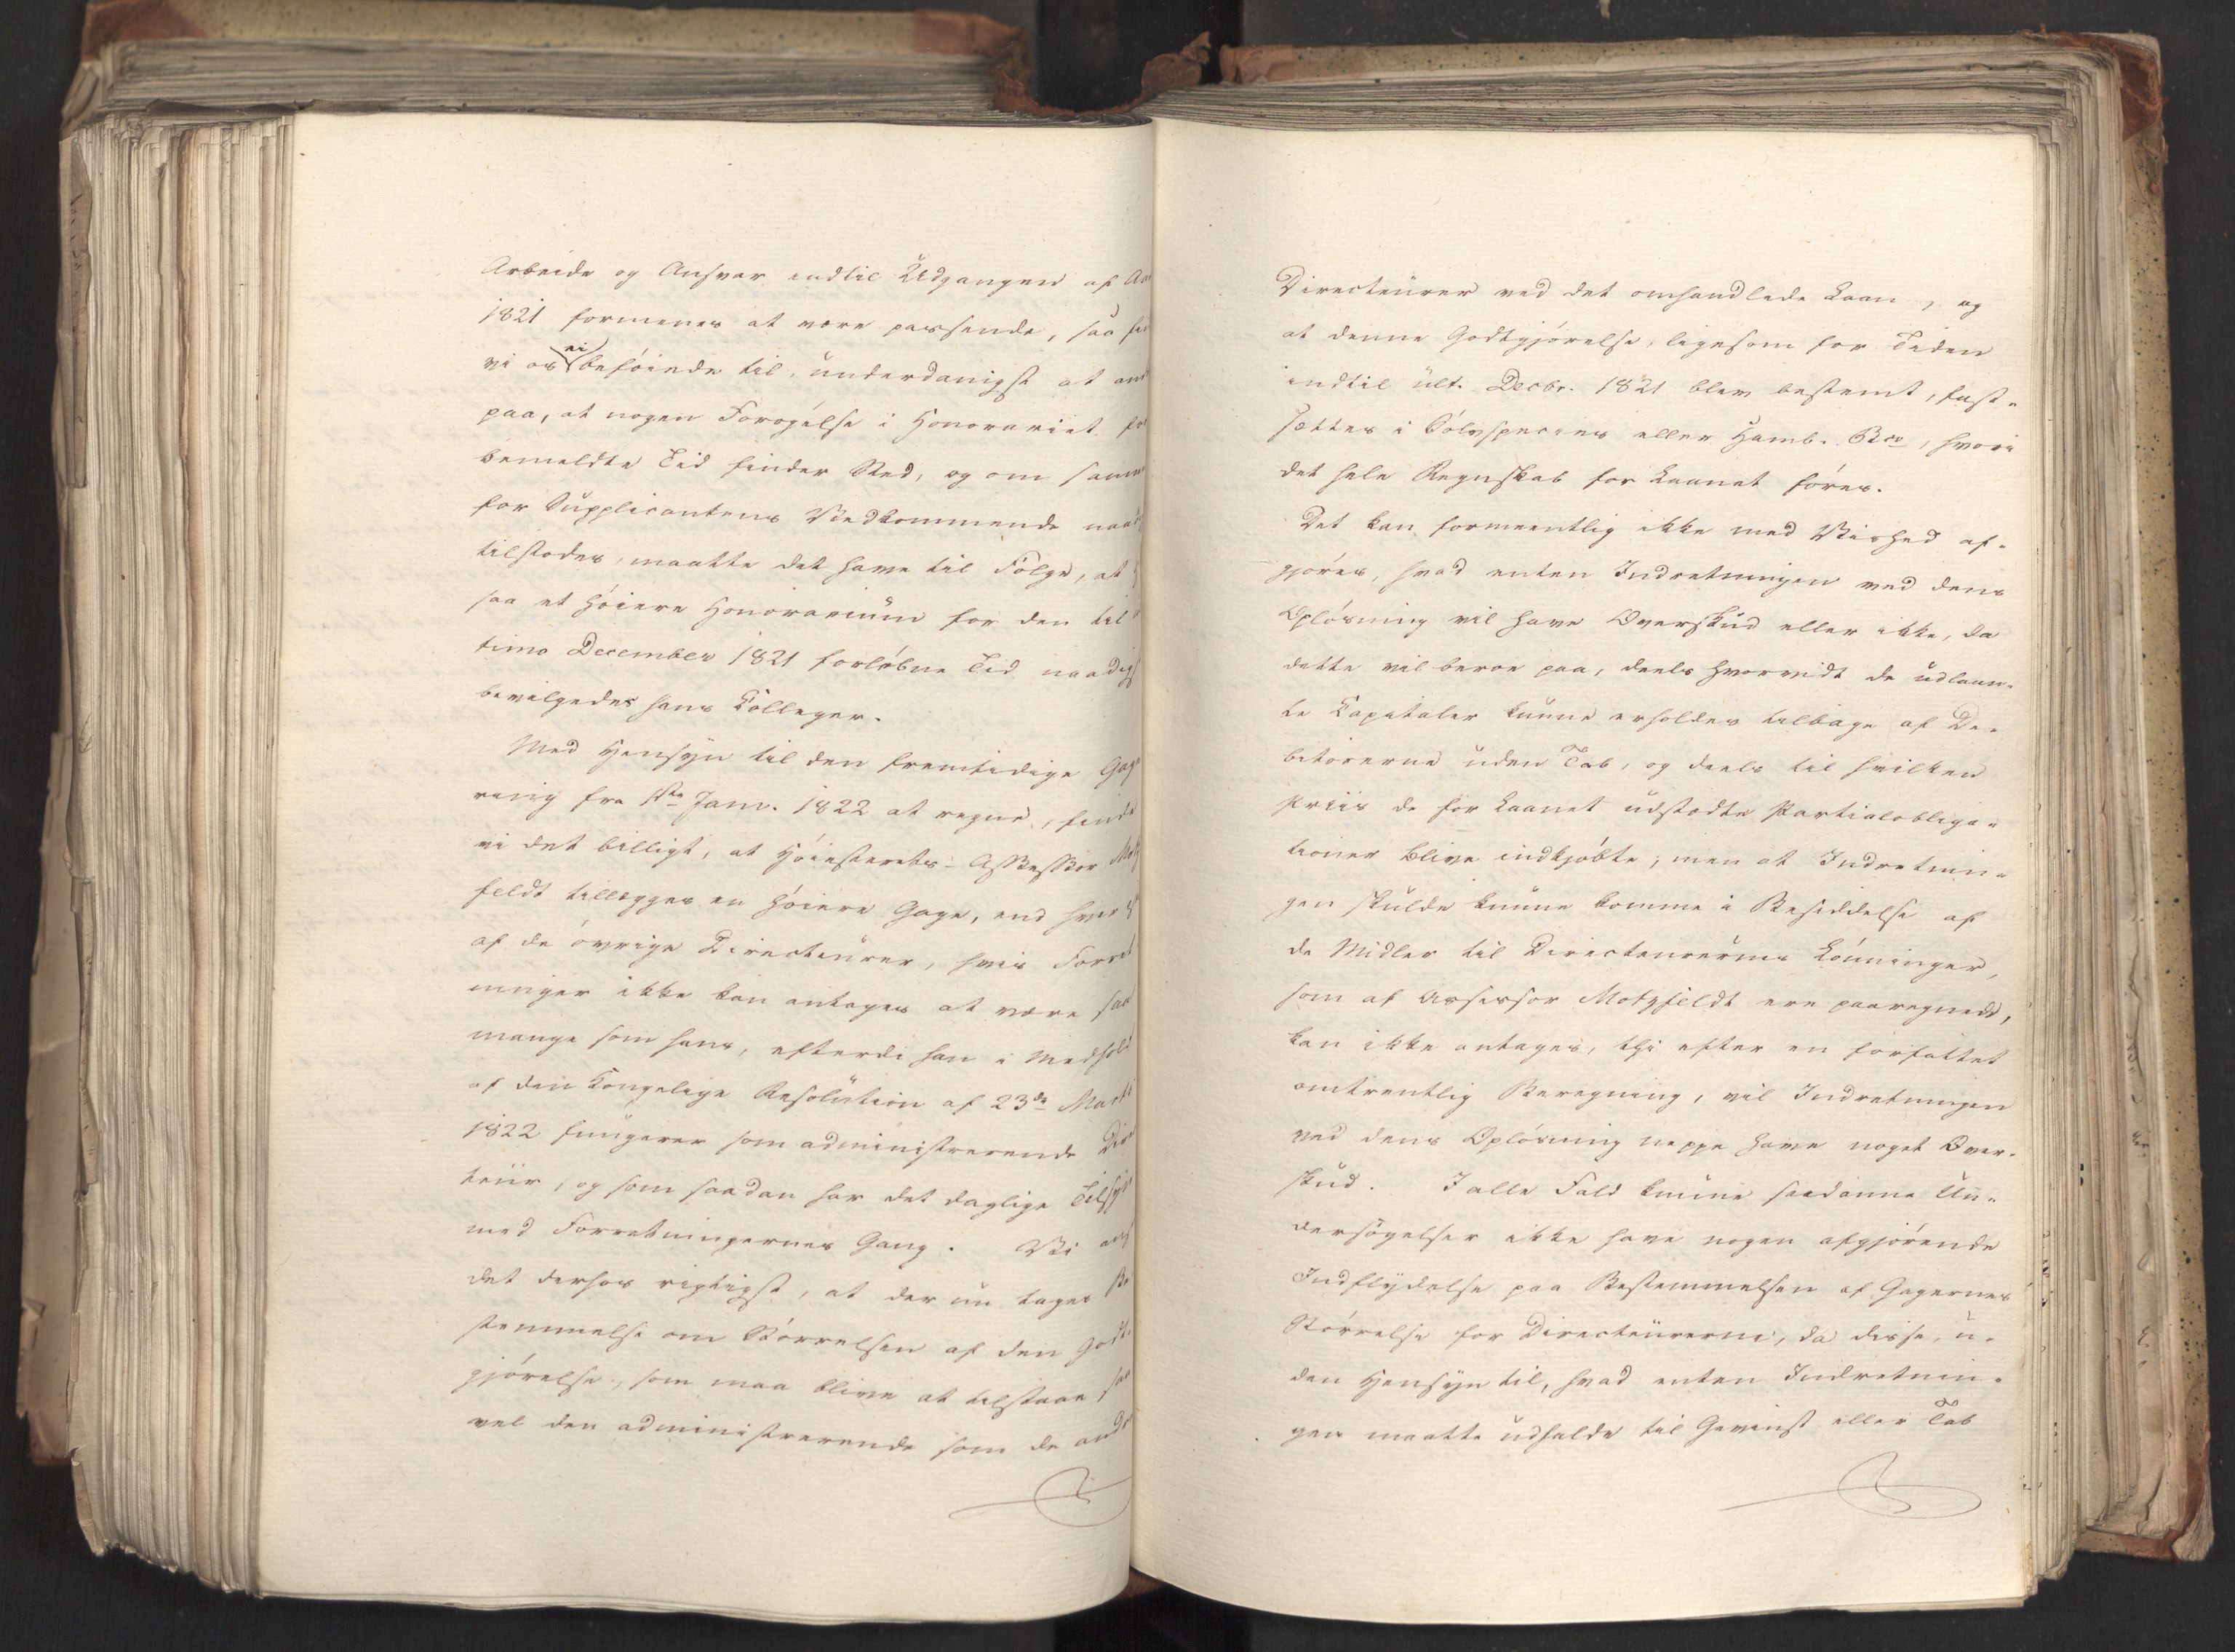 Arbeide og Ansvar indtil Udgangen af Aar
1821 formenes at være passende, saa fin
vi os ei beføiede til, underdanigst at an
paa, at nogen Forøgelse i Honorariet for
bemeldte Tid finder Sted, og om samme
for Supplicantens Vedkommende naad
tilstodes, maatte det have til Følge, at
saa et høiere Honorarium for den til
timo December 1821 forløbne Tid naadigst
bevilgedes hans Colleger.
Med Hensyn til den fremtidige Gage
ring fra 1ste Janv. 1822 at regne, finde
vi det billigt, at Høiesterets-Assessor Motz
feldt tillægges en høiere Gage, end hver
af de øvrige Directeurer, hvis Forret
ninger ikke kan antages at være saa
mange som hans, efterdi han i Medhold
af den Kongelige Resolution af 23de Marts
1822 fungerer som administrerende Direc
teur, og som saadan har det daglige Tilsyn
med Forretningernes Gang. Vi ans
det derhos rigtigst, at der nu tages Be
stemmelse om Størrelsen af den Godt-
gjørelse, som maa blive at tilstaae saa
vel den administrerende som de andre
Directeurer ved det omhandlede Laan, og
at denne Godtgjørelse, ligesom for Tiden
indtil ult. Decbr. 1821 blev bestemt, fast-
sættes i Sølvspecies eller Hamb. Bco, hvori
det hele Regnskab for Laanet føres.
Det kan formeentlig ikke med Vished af-
gjøres, hvad enten Indretningen ved dens
Opløsning vil have Overskud eller ikke, da
dette vil beroe paa, deels hvorvidt de udlaan-
te Kapitaler kunne erholdes tilbage af De-
bitorerne uden Tab, og deels til hvilken
Priis de for Laanet udstædte Partialobliga-
tioner blive indkjøbte; men at Indretnin-
gen skulde kunne komme i Besiddelse af
de Midler til Directeurernes Lønninger,
som af Assessor Motzfeldt ere paaregnede,
kan ikke antages, thi efter en forfattet
omtrentlig Beregning, vil Indretningen
ved dens Opløsning neppe have noget Over-
skud. I alle Fald kunne saadanne Un-
dersøgelser ikke have nogen afgjørende
Indflydelse paa Bestemmelsen af Gagernes
Størrelse for Directeurerne, da disse, u-
den Hensyn til, hvad enten Indretnin-
gen maatte udfalde til Gevinst eller Tab